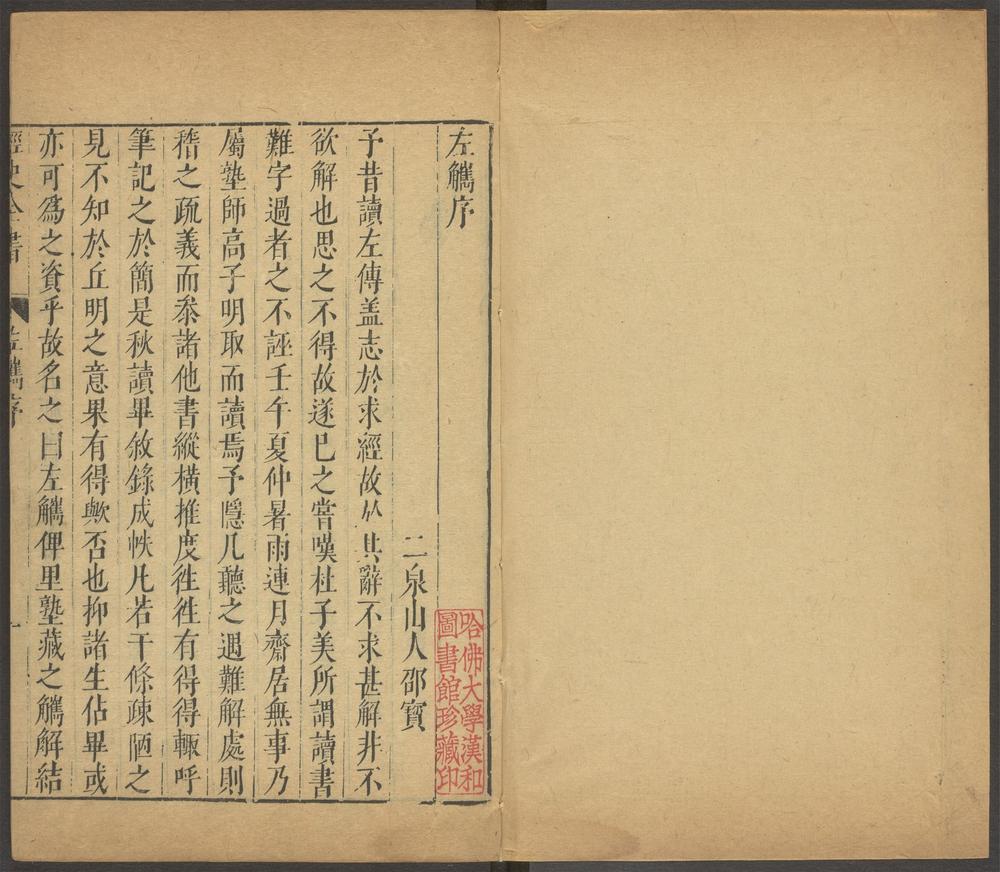 左觿序
二泉山人邵寶
予昔讀左傳盖志於求經故於其辭不求甚解非不
欲解也思之不得故遂已之嘗嘆杜子美所謂讀書
難字過者之不誣壬午夏仲暑雨連月齋居無事乃
屬塾師高子明取而讀焉予隱几聽之遇難解處則
稽之疏義而叅諸他書縱橫推度徃徃有得得輙呼
筆記之於簡是秋讀畢敘錄成帙凡若干條疎陋之
見不知於丘明之意果有得歟否也抑諸生佔畢或
亦可爲之資乎故名之曰左觿俾里塾藏之觿解結
經史全書
左觿序
一
哈佛大學漢和
圖書館珍藏印